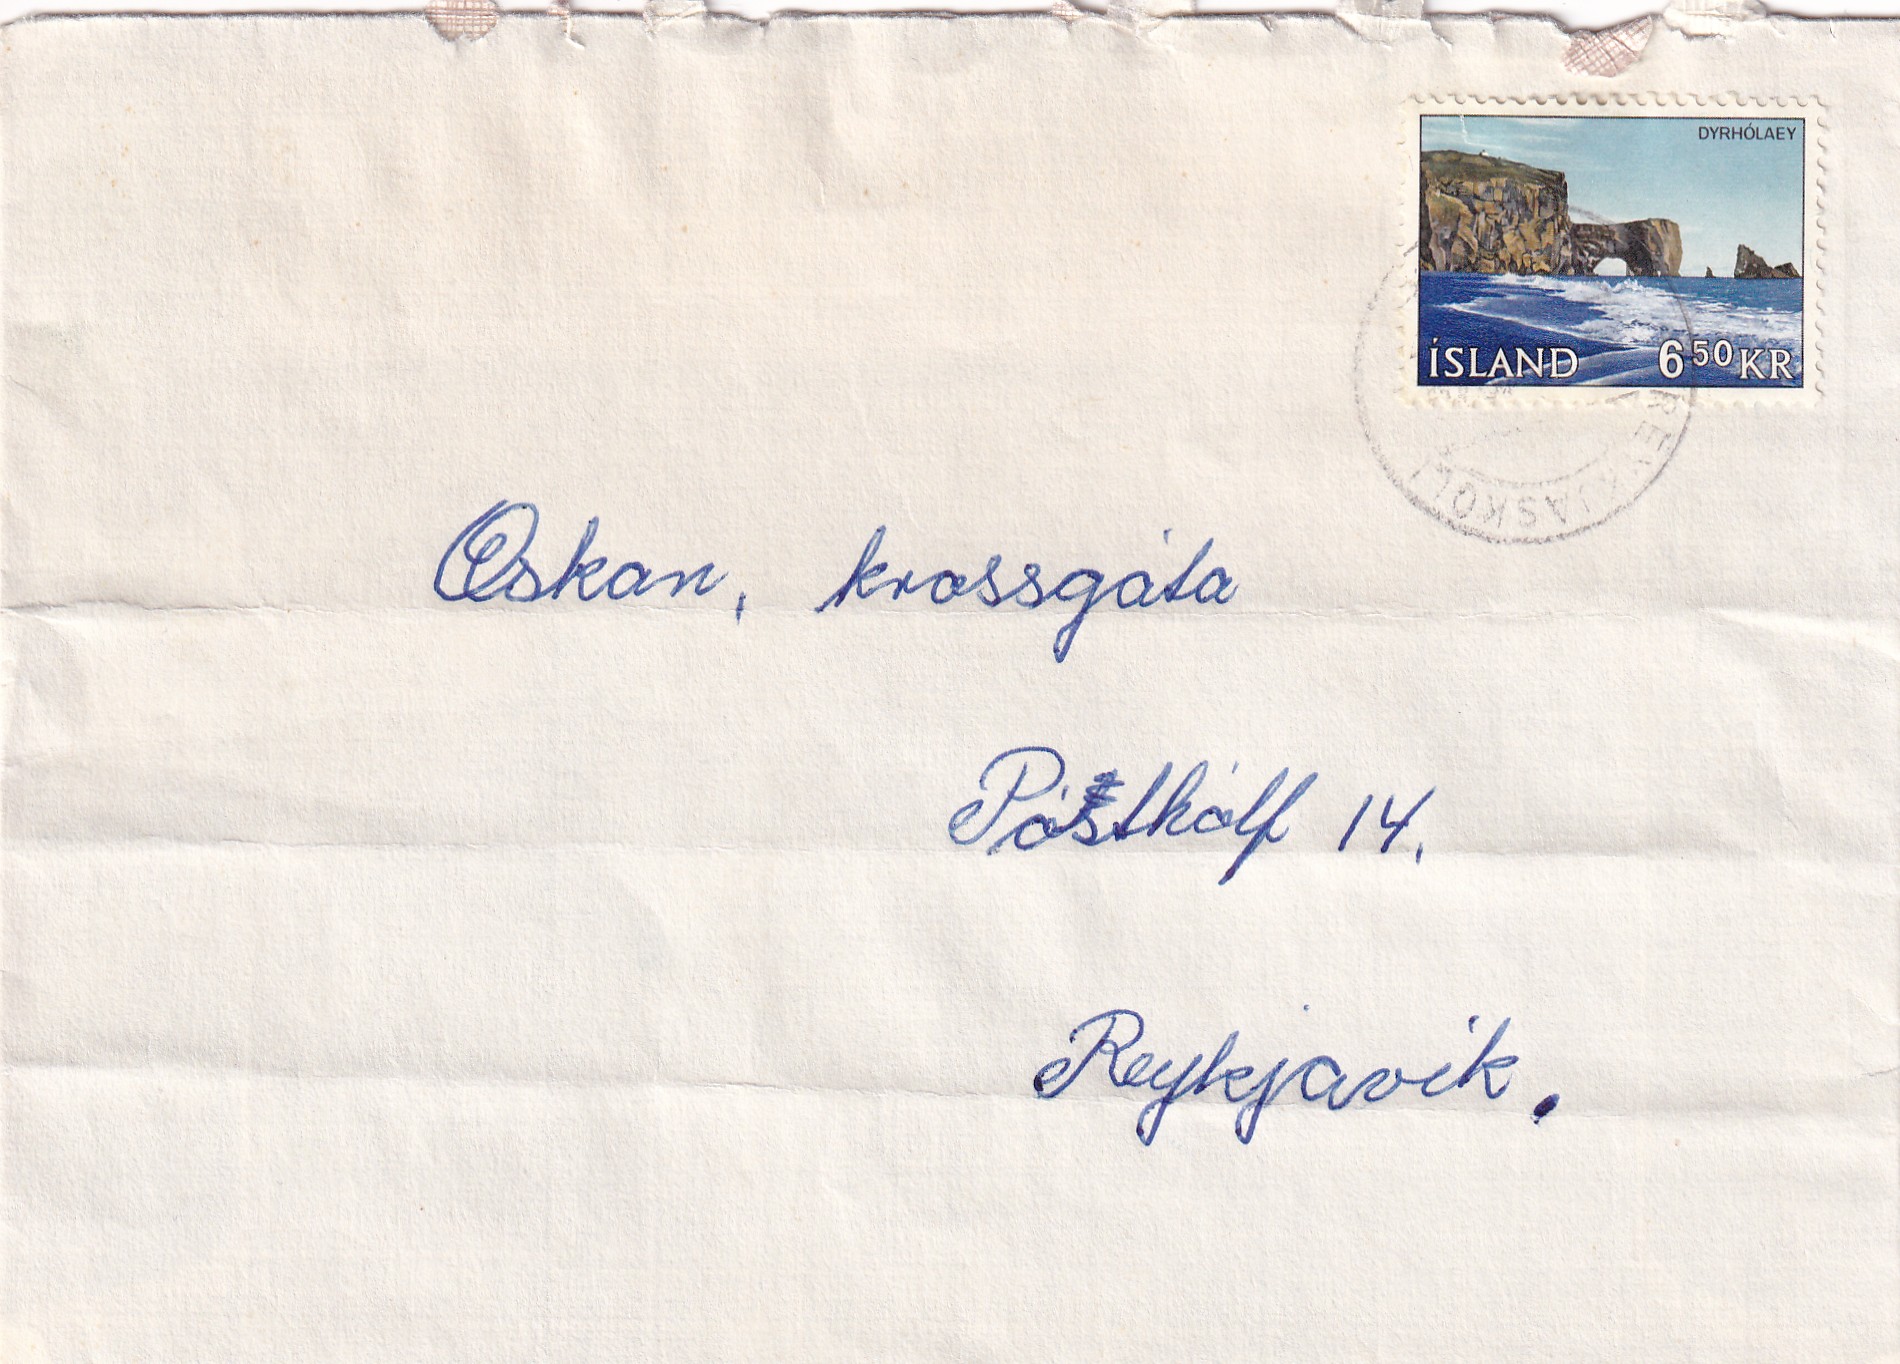 DYRHÓLAEY
ÍSLAND 6 50 KR
REYKJASKÓLI
Oskan, krossgáta
Pósthólf 14.
Reykjavík.